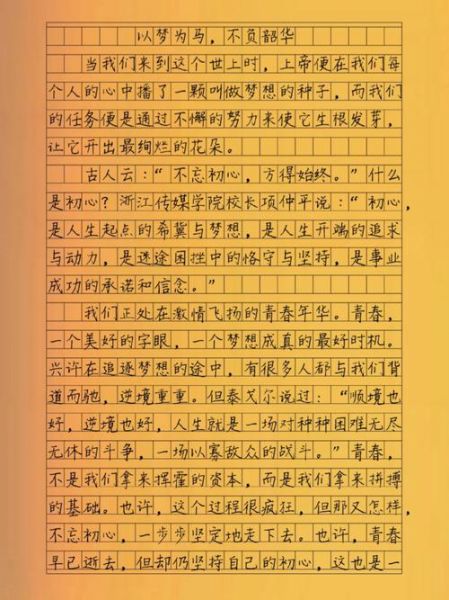 以梦为马，不负韶华
当我们来到这个世上时，上帝便在我们每
个人的心中播了一颗叫做梦想的种子，而我们
的任务便是通过不懈的努力来使它生根发芽，
让它开出最绚烂的花朵。
古人云：“不忘初心，方得始终。”什么
是初心？浙江传媒学院校长项仲平说：“初心，
是人生起点的希冀与梦想，是人生开端的追求
与动力，是迷途困挫中的恪守与坚持，是事业
成功的承诺和信念。”
我们正处在激情飞扬的青春年华。青春，
一个美好的字眼，一个梦想成真的最好时机。
兴许在追逐梦想的途中，有很多人都与我们背
道而驰，逆境重重。但泰戈尔说过：“顺境也
好，逆境也好，人生就是一场对种种困难无尽
无休的斗争，一场以寡敌众的战斗。”青春，
不是我们拿来挥霍的资本，而是我们拿来拼搏
的基础。也许，这个过程很疯狂，但那又怎样，
不忘初心，一步步坚定地走下去。也许，青春
早已逝去，但却仍坚持自己的初心，这也是一